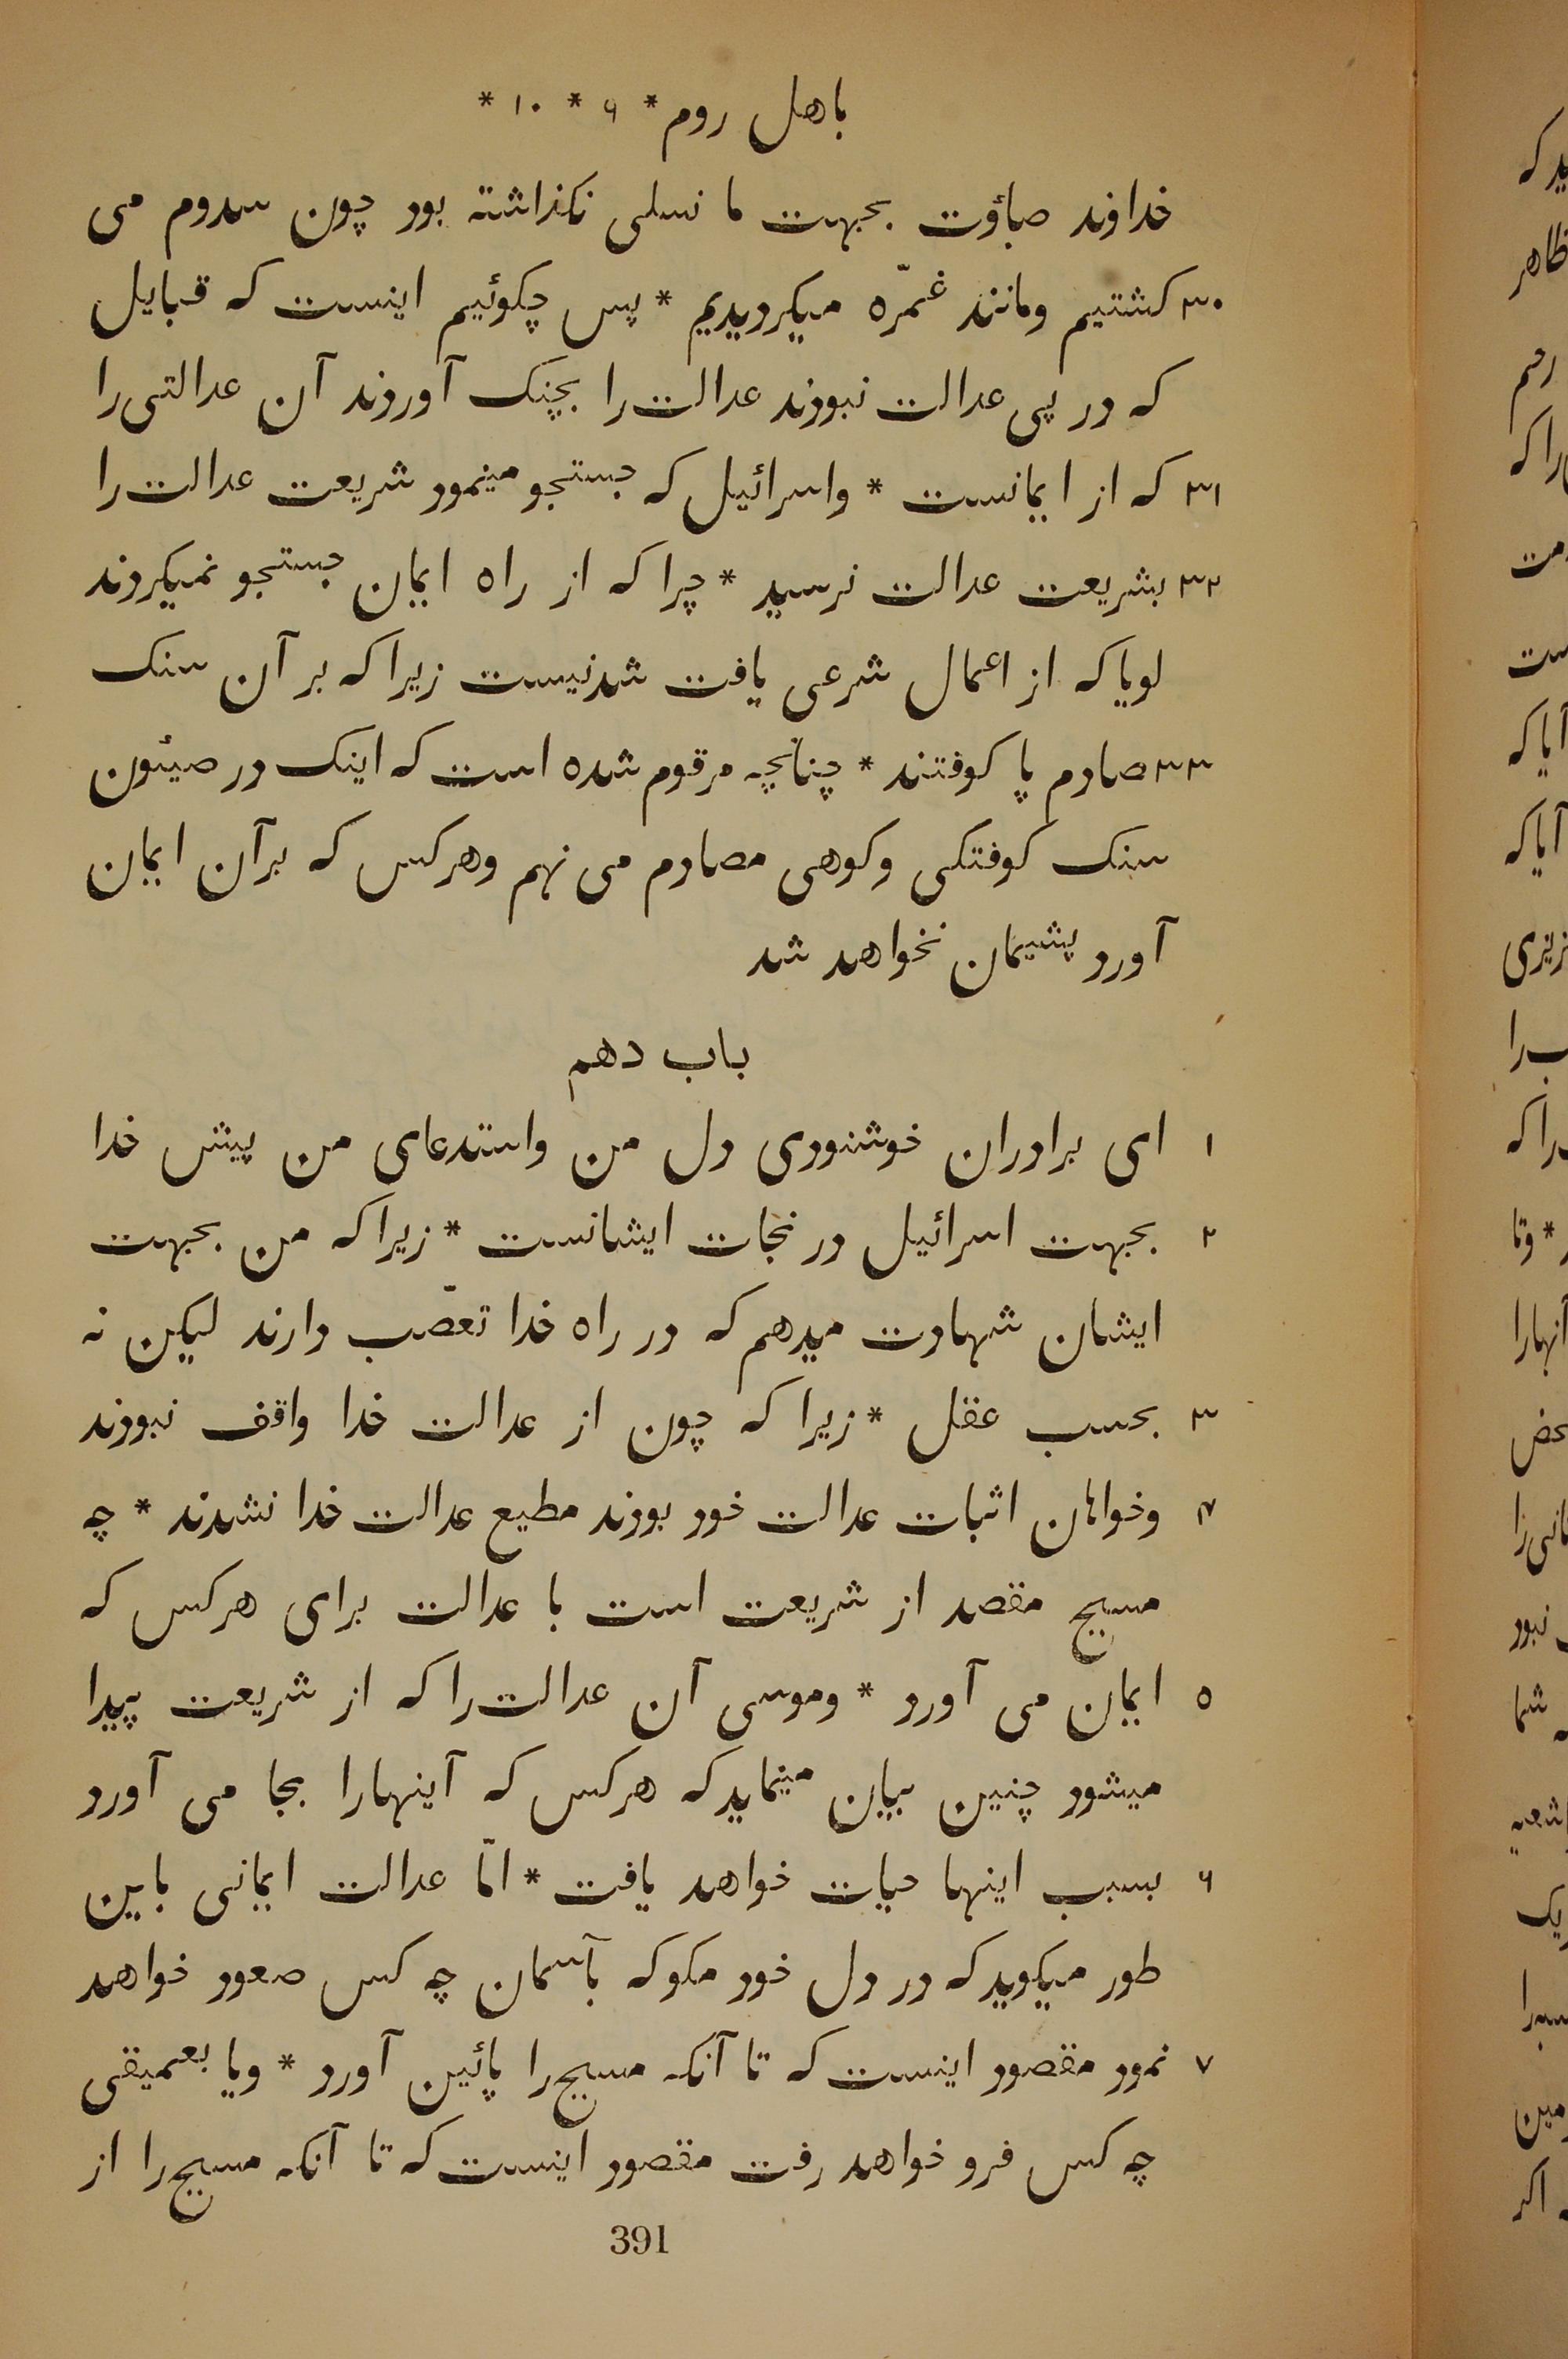 باهل روم * ۹ * ۱۰ *
خداوند صباؤت بجهت ما نسلی نکذاشته بود چون سدوم می
۳۰ کشتیم ومانند غمّره میکردیدیم * پس چکوئیم اینست که قبایل
که در پی عدالت نبودند عدالت را بچنک آوردند آن عدالتی را
۳۱ که از ایمانست * واسرائیل که جستجو مینمود شریعت عدالت را
۳۲ بشریعت عدالت نرسید * چرا که از راه ایمان جستجو نمیکردند
کویا که از اعمال شرعی یافت شدنیست زیرا که بر آن سنک
۳۳ صادم پا کوفتند * چنانچه مرقوم شده است که اینک در صیئون
سنک کوفتکی وکوهی مصادم می نهم وهرکس که برآن ایمان
آورد پشیمان نخواهد شد
باب دهم
۱ ای برادران خوشنودی دل من واستدعای من پیش خدا
۲ بجهت اسرائیل در نجات ایشانست * زیرا که من بجهت
ایشان شهادت میدهم که در راه خدا تعصّب دارند لیکن نه
۳ بحسب عقل * زیرا که چون از عدالت خدا واقف نبودند
۴ وخواهان اثبات عدالت خود بودند مطیع عدالت خدا نشدند * چه
مسیح مقصد از شریعت است با عدالت برای هرکس که
۵ ایمان می آورد * وموسی آن عدالت را که از شریعت پیدا
میشود چنین بیان مینماید که هرکس که آینهارا بجا می آورد
۶ بسبب اینها حیات خواهد یافت * امّا عدالت ایمانی باین
طور میکوید که در دل خود مکو که بآسمان چه کس صعود خواهد
۷ نمود مقصود اینست که تا آنکه مسیح را پائین آورد * ویا بعمیقی
چه کس فرو خواهد رفت مقصود اینست که تا آنکه مسیح را از
391